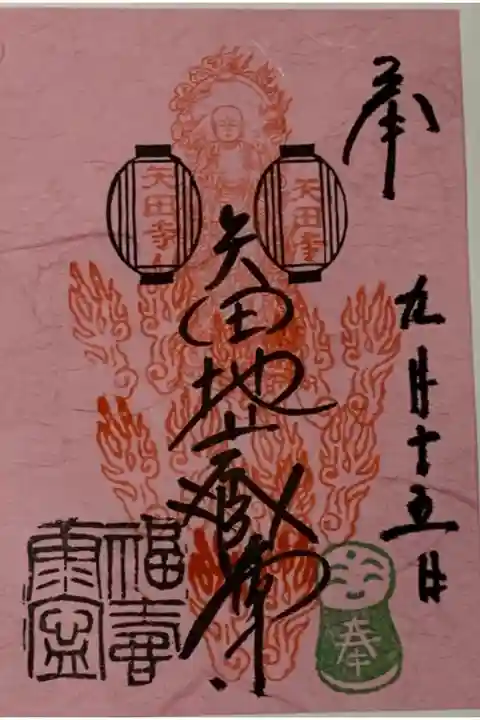 奉
九月十五日
矢田寺
矢田地蔵尊
矢田寺
福寿
奉